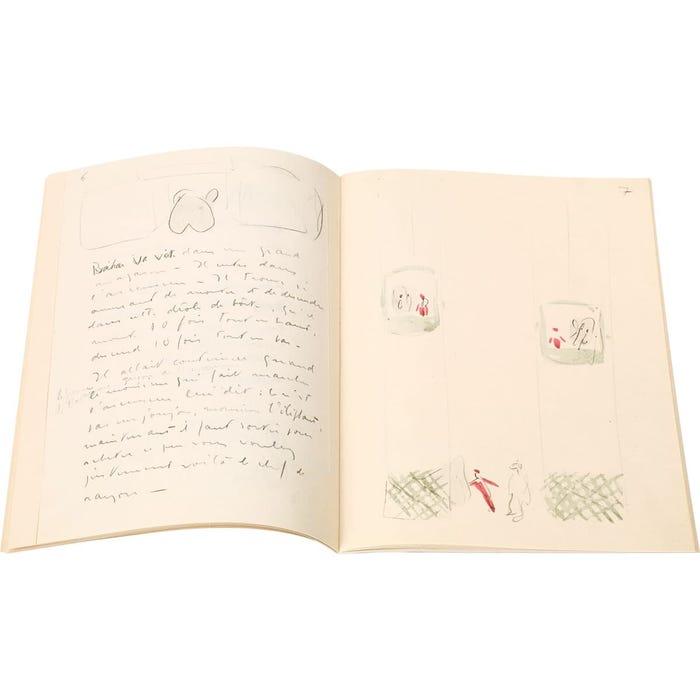 6
Babar va vite dans un grand
magasin — Il entre dans
l'ascenseur — Il trouve si
amusant de monter et de descendre
dans cette drôle de boîte, qu'il
monte 10 fois tout en haut,
descend 10 fois tout en bas —
Il allait continuer quand
le monsieur qui fait marcher
l'ascenseur lui dit : Ce n'est
pas un joujou, monsieur l'éléphant
maintenant il faut sortir pour
acheter ce que vous voulez
justement voilà le chef de
rayon —
7